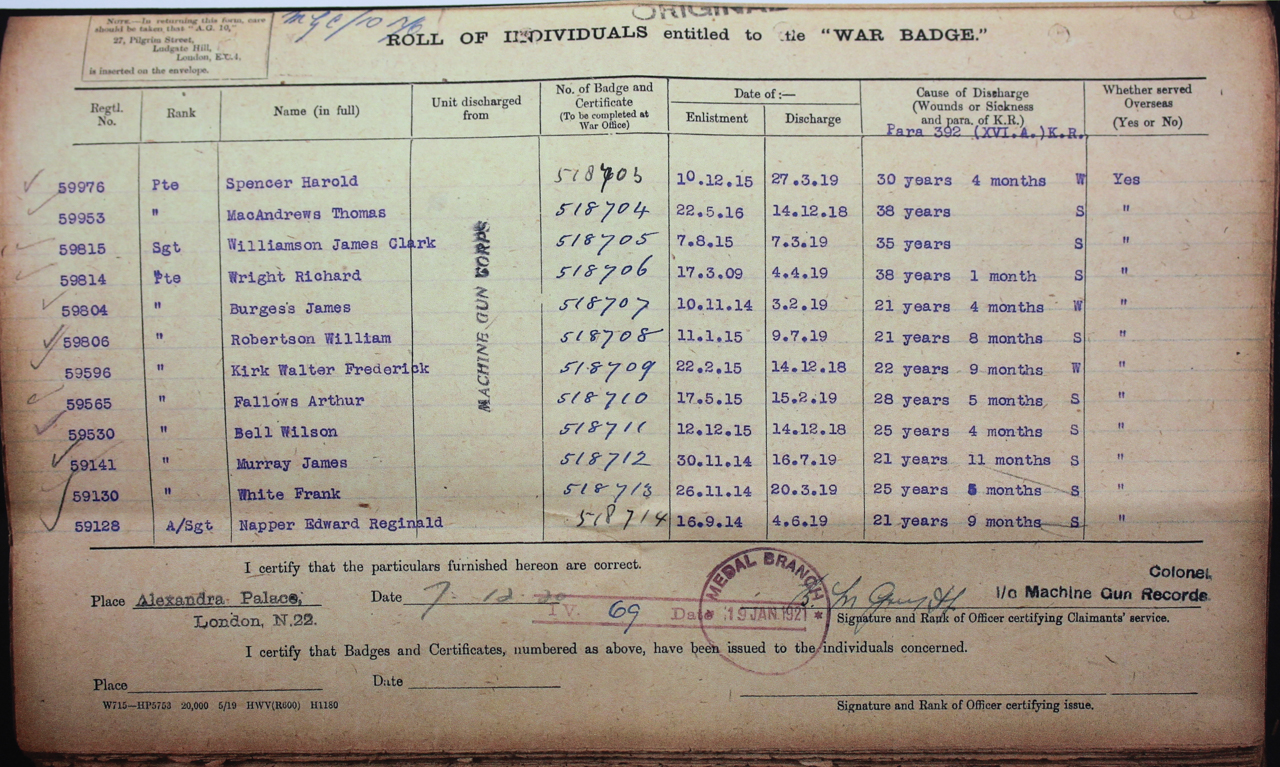 ORIGINAL
NOTE.—In returning this form, care
should be taken that "A.G. 10,"
27, Pilgrim Street,
Ludgate Hill,
London, E.C.4.
is inserted on the envelope.
ROLL OF INDIVIDUALS entitled to the "WAR BADGE."
Regtl. No. Rank Name (in full) Unit discharged from No. of Badge and Certificate (To be completed at War Office) Date of:— Enlistment Discharge Cause of Discharge (Wounds or Sickness and para. of K.R.) Whether served Overseas (Yes or No)
Para 392 (XVI.A.)K.R.
MACHINE GUN CORPS
59976 Pte Spencer Harold 518703 10.12.15 27.3.19 30 years 4 months W Yes
59953 " MacAndrews Thomas 518704 22.5.16 14.12.18 38 years S "
59815 Sgt Williamson James Clark 518705 7.8.15 7.3.19 35 years S "
59814 Pte Wright Richard 518706 17.3.09 4.4.19 38 years 1 month S "
59804 " Burgess James 518707 10.11.14 3.2.19 21 years 4 months W "
59806 " Robertson William 518708 11.1.15 9.7.19 21 years 8 months S "
59596 " Kirk Walter Frederick 518709 22.2.15 14.12.18 22 years 9 months W "
59565 " Fallows Arthur 518710 17.5.15 15.2.19 28 years 5 months S "
59530 " Bell Wilson 518711 12.12.15 14.12.18 25 years 4 months S "
59141 " Murray James 518712 30.11.14 16.7.19 21 years 11 months S "
59130 " White Frank 518713 26.11.14 20.3.19 25 years 5 months S "
59128 A/Sgt Napper Edward Reginald 518714 16.9.14 4.6.19 21 years 9 months S "
I certify that the particulars furnished hereon are correct.
Colonel,
Place Alexandra Palace, Date 7. 12. 20 I/c Machine Gun Records
London, N.22.
I.V. 69 Date
MEDAL BRANCH
19 JAN. 1921
Signature and Rank of Officer certifying Claimants' service.
I certify that Badges and Certificates, numbered as above, have been issued to the individuals concerned.
Place Date
W715—HP5753 20,000 5/19 HWV(R600) H1180
Signature and Rank of Officer certifying issue.